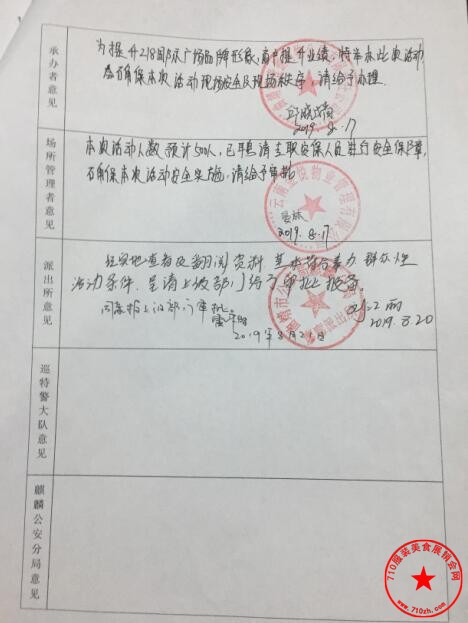 承办者意见
为提升218国际广场品牌形象,商户提升业绩,特举办此次活动
为确保本次活动现场安全及现场秩序,请给予办理.
2019.8.17
场所管理者意见
本次活动人数预计500人,已聘请专职安保人员进行安全保障,
确保本次活动安全实施,请给予审批
2019.8.17
云南 物业管理有限
派出所意见
经实地查看及翻阅资料 基本符合举办群众性
活动条件,呈请上级部门给予审批报备.
同意报上级部门审批
2019.8.20
2019年8月21日
巡特警大队意见
麒麟公安分局意见
710服装美食展销会网
www.710zh.com